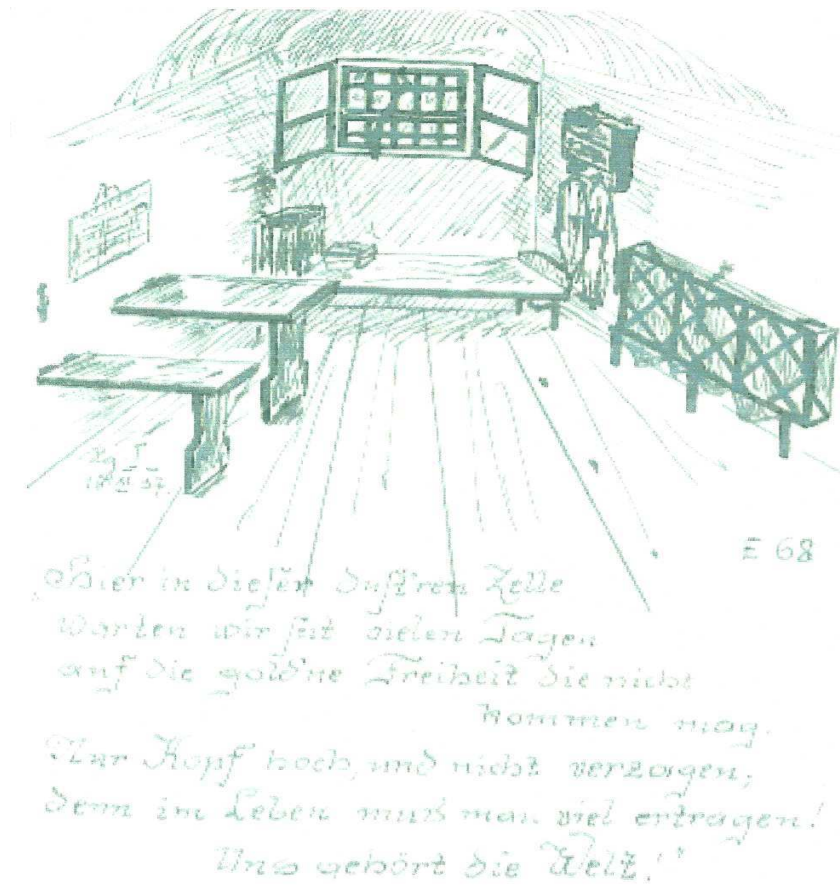 E 68
„Hier in dieser dustren Zelle
warten wir seit vielen Tagen
auf die gold'ne Freiheit die nicht
kommen mag.
Nur Kopf hoch, und nicht verzagen,
denn im Leben muß man viel ertragen!
Uns gehört die Welt!"